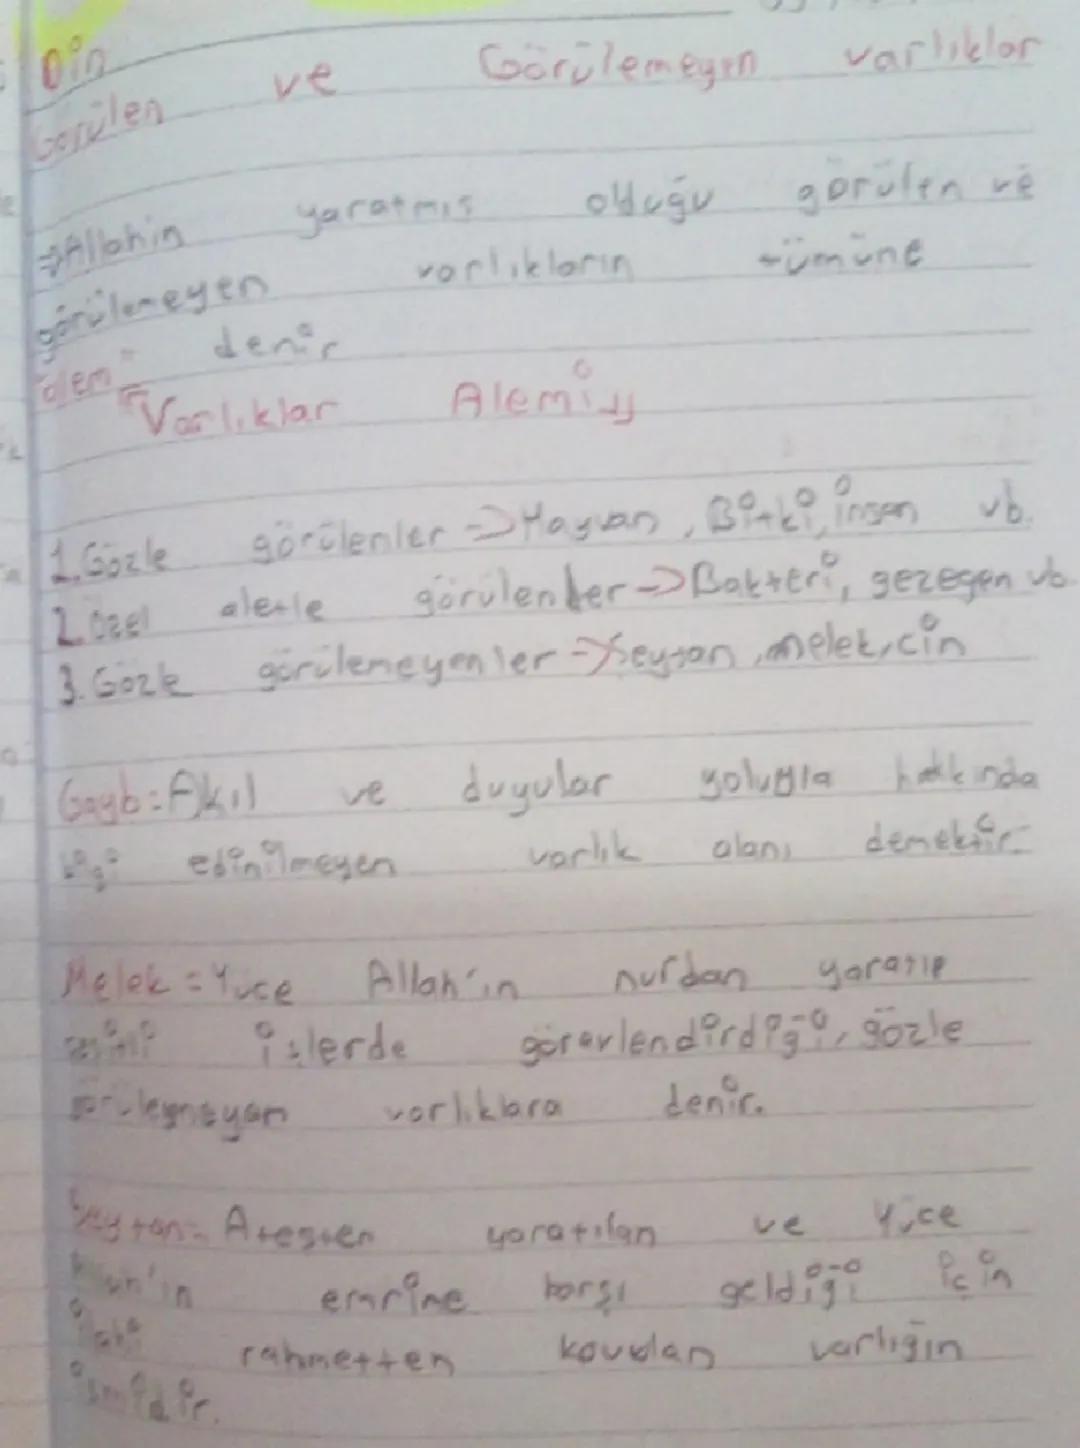 Din
Görülen ve Görülemeyen varlıklar
⇒Allahın yaratmış olduğu görülen ve
görülemeyen varlıkların tümüne
"alem" denir
"Varlıklar Alemi"
1. Gözle görülenler ⇒ Hayvan, Bitki, insan vb.
2. Özel aletle görülenler ⇒ Bakteri, gezegen vb.
3. Gözle görülemeyenler ⇒ Şeytan, melek, cin
Gayb = Akıl ve duyular yoluyla hakkında
bilgi edinilmeyen varlık alanı demektir.
Melek = Yüce Allah'ın nurdan yaratıp
çeşitli işlerde görevlendirdiği, gözle
görülemeyen varlıklara denir.
Şeytan = Ateşten yaratılan ve Yüce
Allah'ın emrine karşı geldiği için
ilahi rahmetten kovulan varlığın
ismidir.